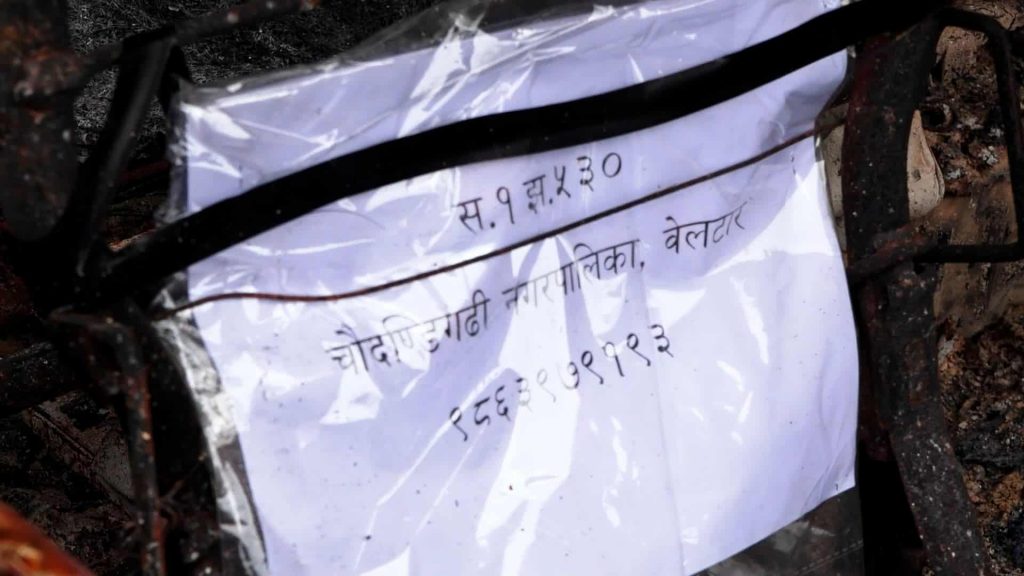 स.१ झ.५३०
चौदण्डिगढी नगरपालिका, वेलटार
९८६३९७९१९३